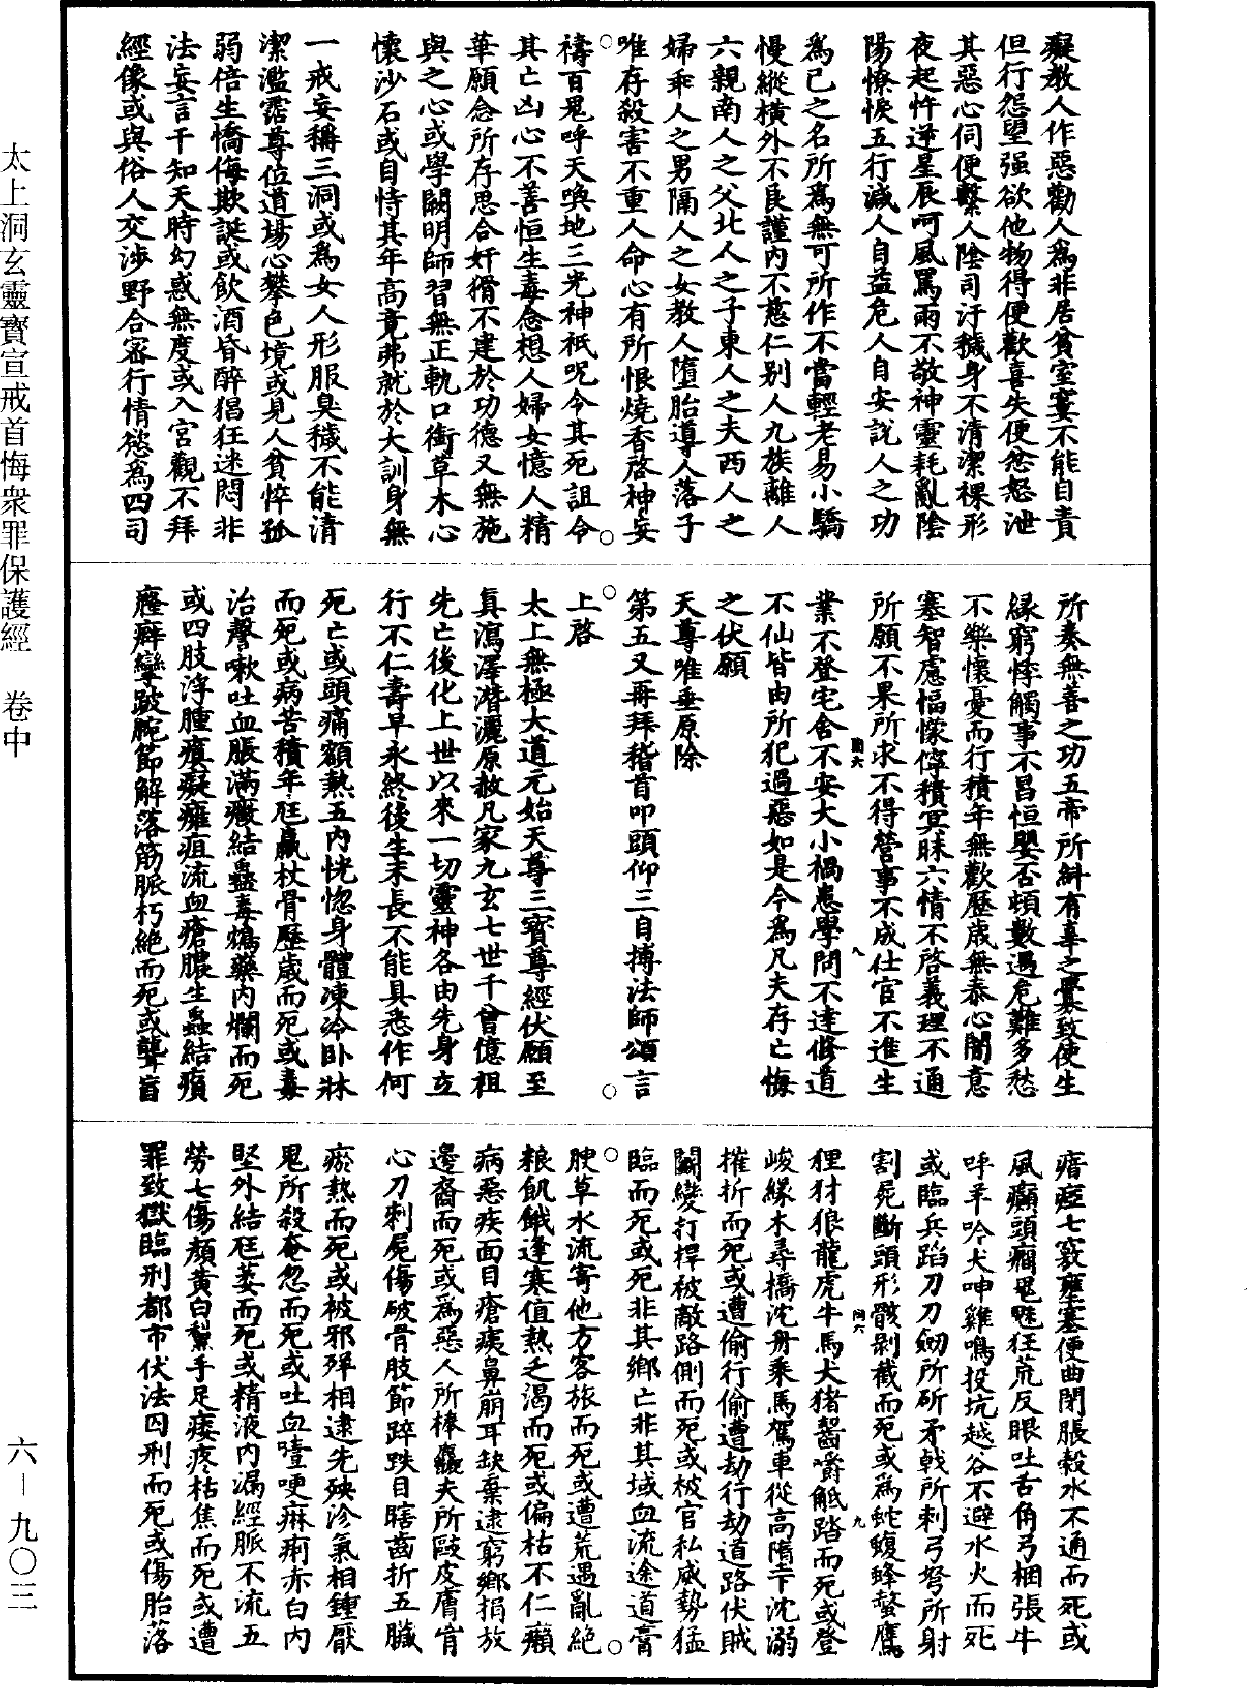 癡教人作惡勸人為非居貧室寠不能自責
但行怨望强欲他物得便歡喜失便忿怒泄
其惡心伺便繫人陰司汙穢身不清潔裸形
夜起忤逆星辰呵風罵雨不敬神靈耗亂陰
陽憭悷五行減人自益危人自安說人之功
為己之名所為無可所作不當輕老易小驕
慢縱橫外不良謹內不慈仁別人九族離人
六親南人之父北人之子東人之夫西人之
婦乖人之男隔人之女教人墮胎導人落子
唯存殺害不重人命心有所恨燒香啓神妄
禱百鬼呼天喚地三光神祇呪令其死詛令
其亡凶心不善恒生毒念想人婦女憶人精
華願念所存思合奸猾不建於功德又無施
與之心或學闕明師習無正軌口銜草木心
懷沙石或自恃其年高竟弗就於大訓身無
一戒妄稱三洞或為女人形服臭穢不能清
潔濫霑尊位道場心攀色境或見人貧悴孤
弱倍生憍侮欺誕或飲酒昏醉猖狂迷悶非
法妄言干知天時幻惑無度或入宮觀不拜
經像或與俗人交涉野合密行情慾為四司
所奏無善之功五帝所糾有辜之釁致使生
緣窮悴觸事不昌恒嬰否頓數遇危難多愁
不樂懷憂而行積年無歡歷歲無泰心闇意
塞智慮愊憏儜積冥昧六情不啓義理不通
所願不果所求不得營事不成仕官不進生
業不登宅舍不安大小禍患學問不達修道
不仙皆由所犯過惡如是今為凡夫存亡悔
之伏願
天尊唯垂原除
第五又再拜稽首叩頭仰三自搏法師頌言
上啓
太上無極大道元始天尊三寶尊經伏願至
真瀉澤潛灑原赦凡家九玄七世千曾億祖
先亡後化上世以來一切靈神各由先身立
行不仁壽早永終後生未長不能具悉作何
死亡或頭痛額熱五內恍惚身體凍冷卧牀
而死或病苦積年尫羸杖骨歷歲而死或毒
治謦嗽吐血脹滿癥結蠱毒鴆藥內爛而死
或四肢浮腫瘨癡癰疽流血瘡膿生蟲結癩
癃癖攣跛腕節解落筋脈朽絶而死或聾盲
瘖瘂七竅壅塞便曲閉脹穀水不通而死或
風癲頭癎鬼魅狂荒反眼吐舌角弓梱張牛
呼羊吟犬呻雞鳴投坑越谷不避水火而死
或臨兵蹈刀刀劒所斫矛戟所刺弓弩所射
割屍斷頭形骸剥截而死或為蛇蝮蜂螫鷹
狸犲狼龍虎牛馬犬猪齧嚼觝踏而死或登
峻緣木尋橋沈舟乘馬駕車從高墮下沈溺
摧折而死或遭偷行偷遭劫行劫道路伏賊
鬬變打捍被敵路側而死或被官私威勢猛
臨而死或死非其鄉亡非其域血流途道膏
腴草水流寄他方客旅而死或遭荒遇亂絶
粮飢餓逢寒值熱乏渴而死或偏枯不仁癩
病惡疾面目瘡痍鼻崩耳缺棄逮窮鄉捐放
邊裔而死或為惡人所棒麤夫所毆皮膚肯
心刀刺屍傷破骨肢節踤跌目瞎齒折五臟
瘀熱而死或被邪殍相逮先殃沴氣相鍾厭
鬼所殺奄忽而死或吐血噎哽痳痢赤白內
堅外結尫萎而死或精液內漏經脈不流五
勞七傷顏黃白䵩手足痿疼枯焦而死或遭
罪致獄臨刑都市伏法囚刑而死或傷胎落
太上洞玄靈寶宣戒首悔衆罪保護經　卷中
六—九〇三